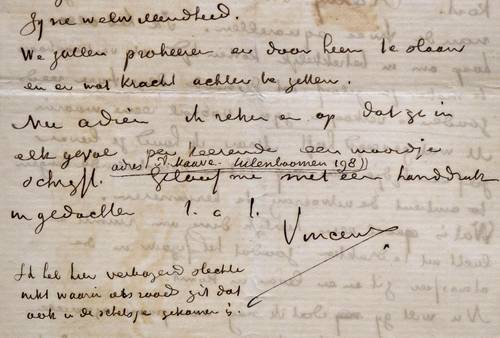 zyne welwillendheid.
We zullen probeeren er door heen te slaan
en er wat kracht achter te zetten.
Nu adieu ik reken er op dat ge in
elk geval per keerende een woordje
adres: Kauw. Uilenboomen 198))
schryft. Geloof me met een handdruk
in gedachten t. à t.
Vincent
Ik heb hier verbazend slechte
inkt waarin als zit dat
ook in de schetsje gekomen is.